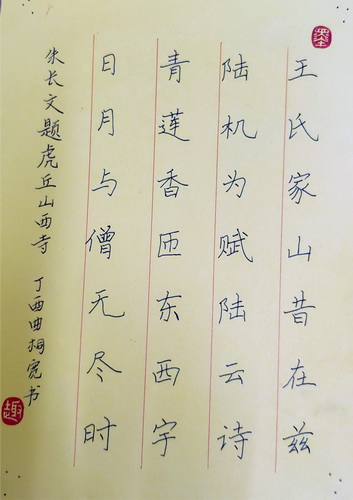 王氏家山昔在兹
陆机为赋陆云诗
青莲香匝东西宇
日月与僧无尽时
朱长文题虎丘山西寺 丁酉曲桐宽书
趣